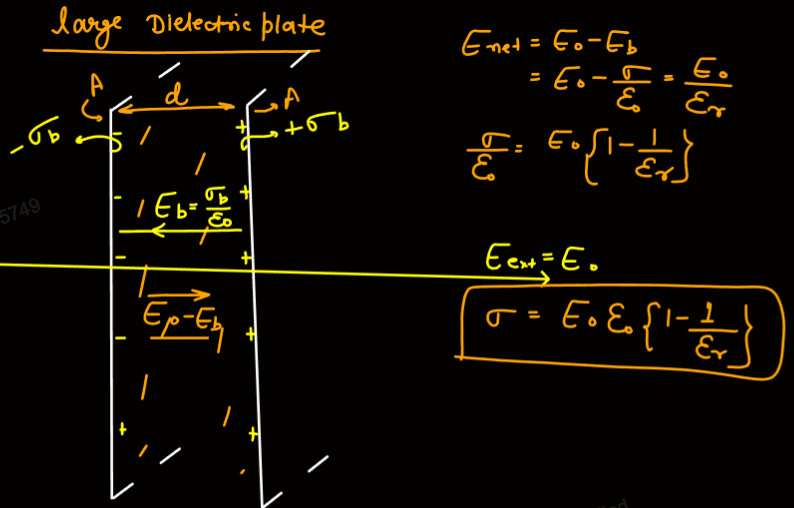 large Dielectric plate
A
d
A
-σb
+σb
Eb = σb/ε0
E0-Eb
Enet = E0 - Eb
= E0 - σ/ε0 = E0/εr
σ/ε0 = E0{1 - 1/εr}
Eext = E0
σ = E0 ε0 {1 - 1/εr}
5749